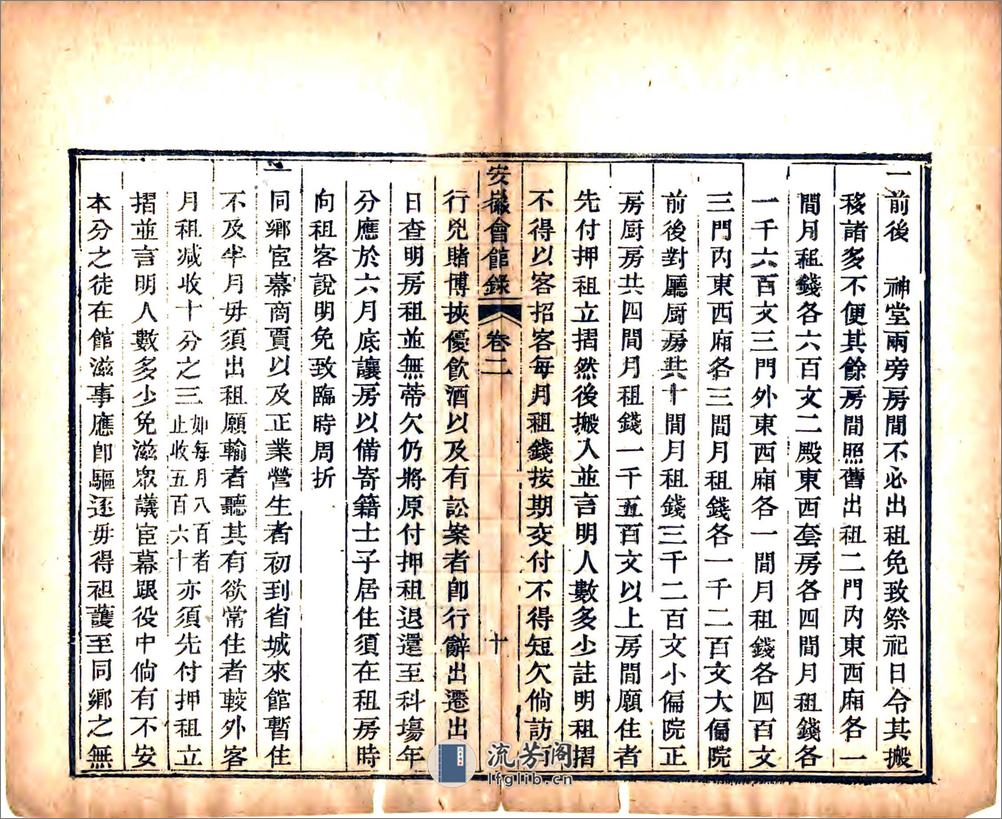 一前後　神堂兩旁房間不必出租免致祭祀日令其搬
移諸多不便其餘房間照舊出租二門內東西廂各一
間月租錢各六百文二殿東西套房各四間月租錢各
一千六百文三門外東西廂各一間月租錢各四百文
三門內東西廂各三間月租錢各一千二百文大偏院
前後對廳厨房共十間月租錢三千二百文小偏院正
房厨房共四間月租錢一千五百文以上房間願住者
先付押租立摺然後搬入並言明人數多少註明租摺
不得以客招客每月租錢按期交付不得短欠倘訪
安徽會館錄　卷二　十
行兇賭博挾優飲酒以及有訟案者卽行辭出遷出
日查明房租並無蒂欠仍將原付押租退還至科場年
分應於六月底讓房以備寄籍士子居住須在租房時
向租客說明免致臨時周折
一同鄉宦幕商賈以及正業營生者初到省城來館暫住
不及半月毋須出租願輸者聽其有欲常住者較外客
月租減收十分之三如每月八百者止收五百六十亦須先付押租立
摺並言明人數多少免滋眾議宦幕跟役中倘有不安
本分之徒在館滋事應卽驅逐毋得袒護至同鄉之無
流芳阁
lfglib.cn